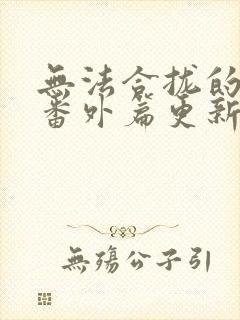 無法合拢的
番外篇更新
無殤公子引